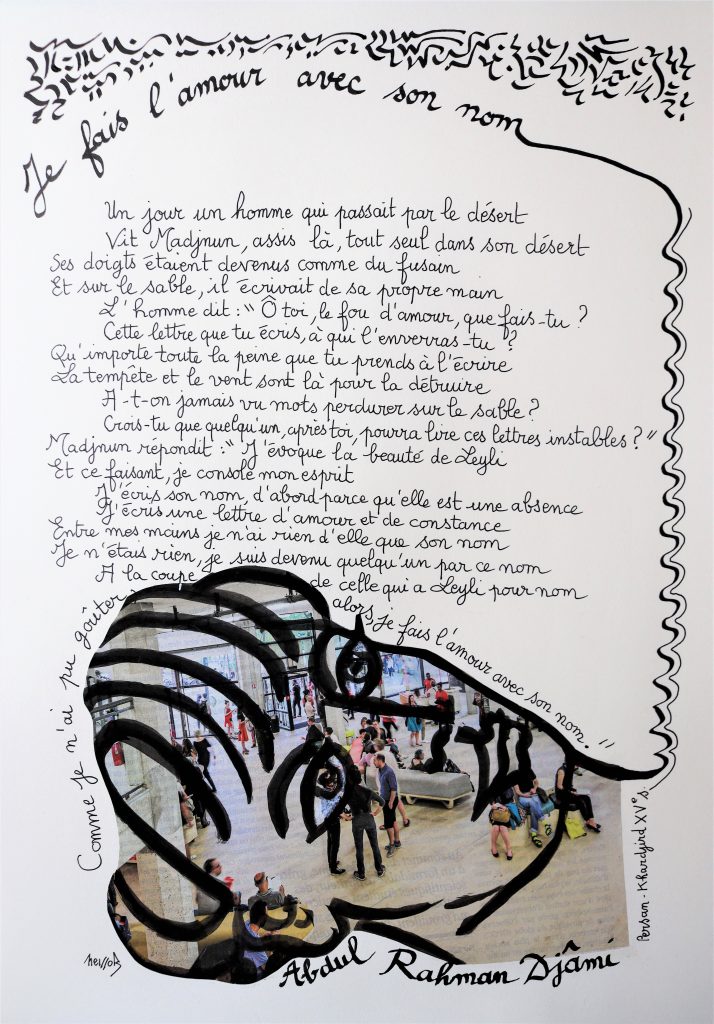 Je fais l'amour avec son nom
Un jour un homme qui passait par le désert
Vit Madjnun, assis là, tout seul dans son désert
Ses doigts étaient devenus comme du fusain
Et sur le sable, il écrivait de sa propre main
L'homme dit : " Ô toi, le fou d'amour, que fais-tu ?
Cette lettre que tu écris, à qui l'enverras-tu ?
Qu'importe toute la peine que tu prends à l'écrire
La tempête et le vent sont là pour la détruire
A-t-on jamais vu mots perdurer sur le sable ?
Crois-tu que quelqu'un, après toi, pourra lire ces lettres instables ? "
Madjnun répondit : " J'évoque la beauté de Leyli
Et ce faisant, je console mon esprit
J'écris son nom, d'abord parce qu'elle est une absence
J'écris une lettre d'amour et de constance
Entre mes mains je n'ai rien d'elle que son nom
Je n'étais rien, je suis devenu quelqu'un par ce nom
A la coupe de celle qui a Leyli pour nom
Comme je n'ai pu goûter
alors, je fais l'amour avec son nom. "
Persan - Khardjird XV°s.
Abdul Rahman Djâmi